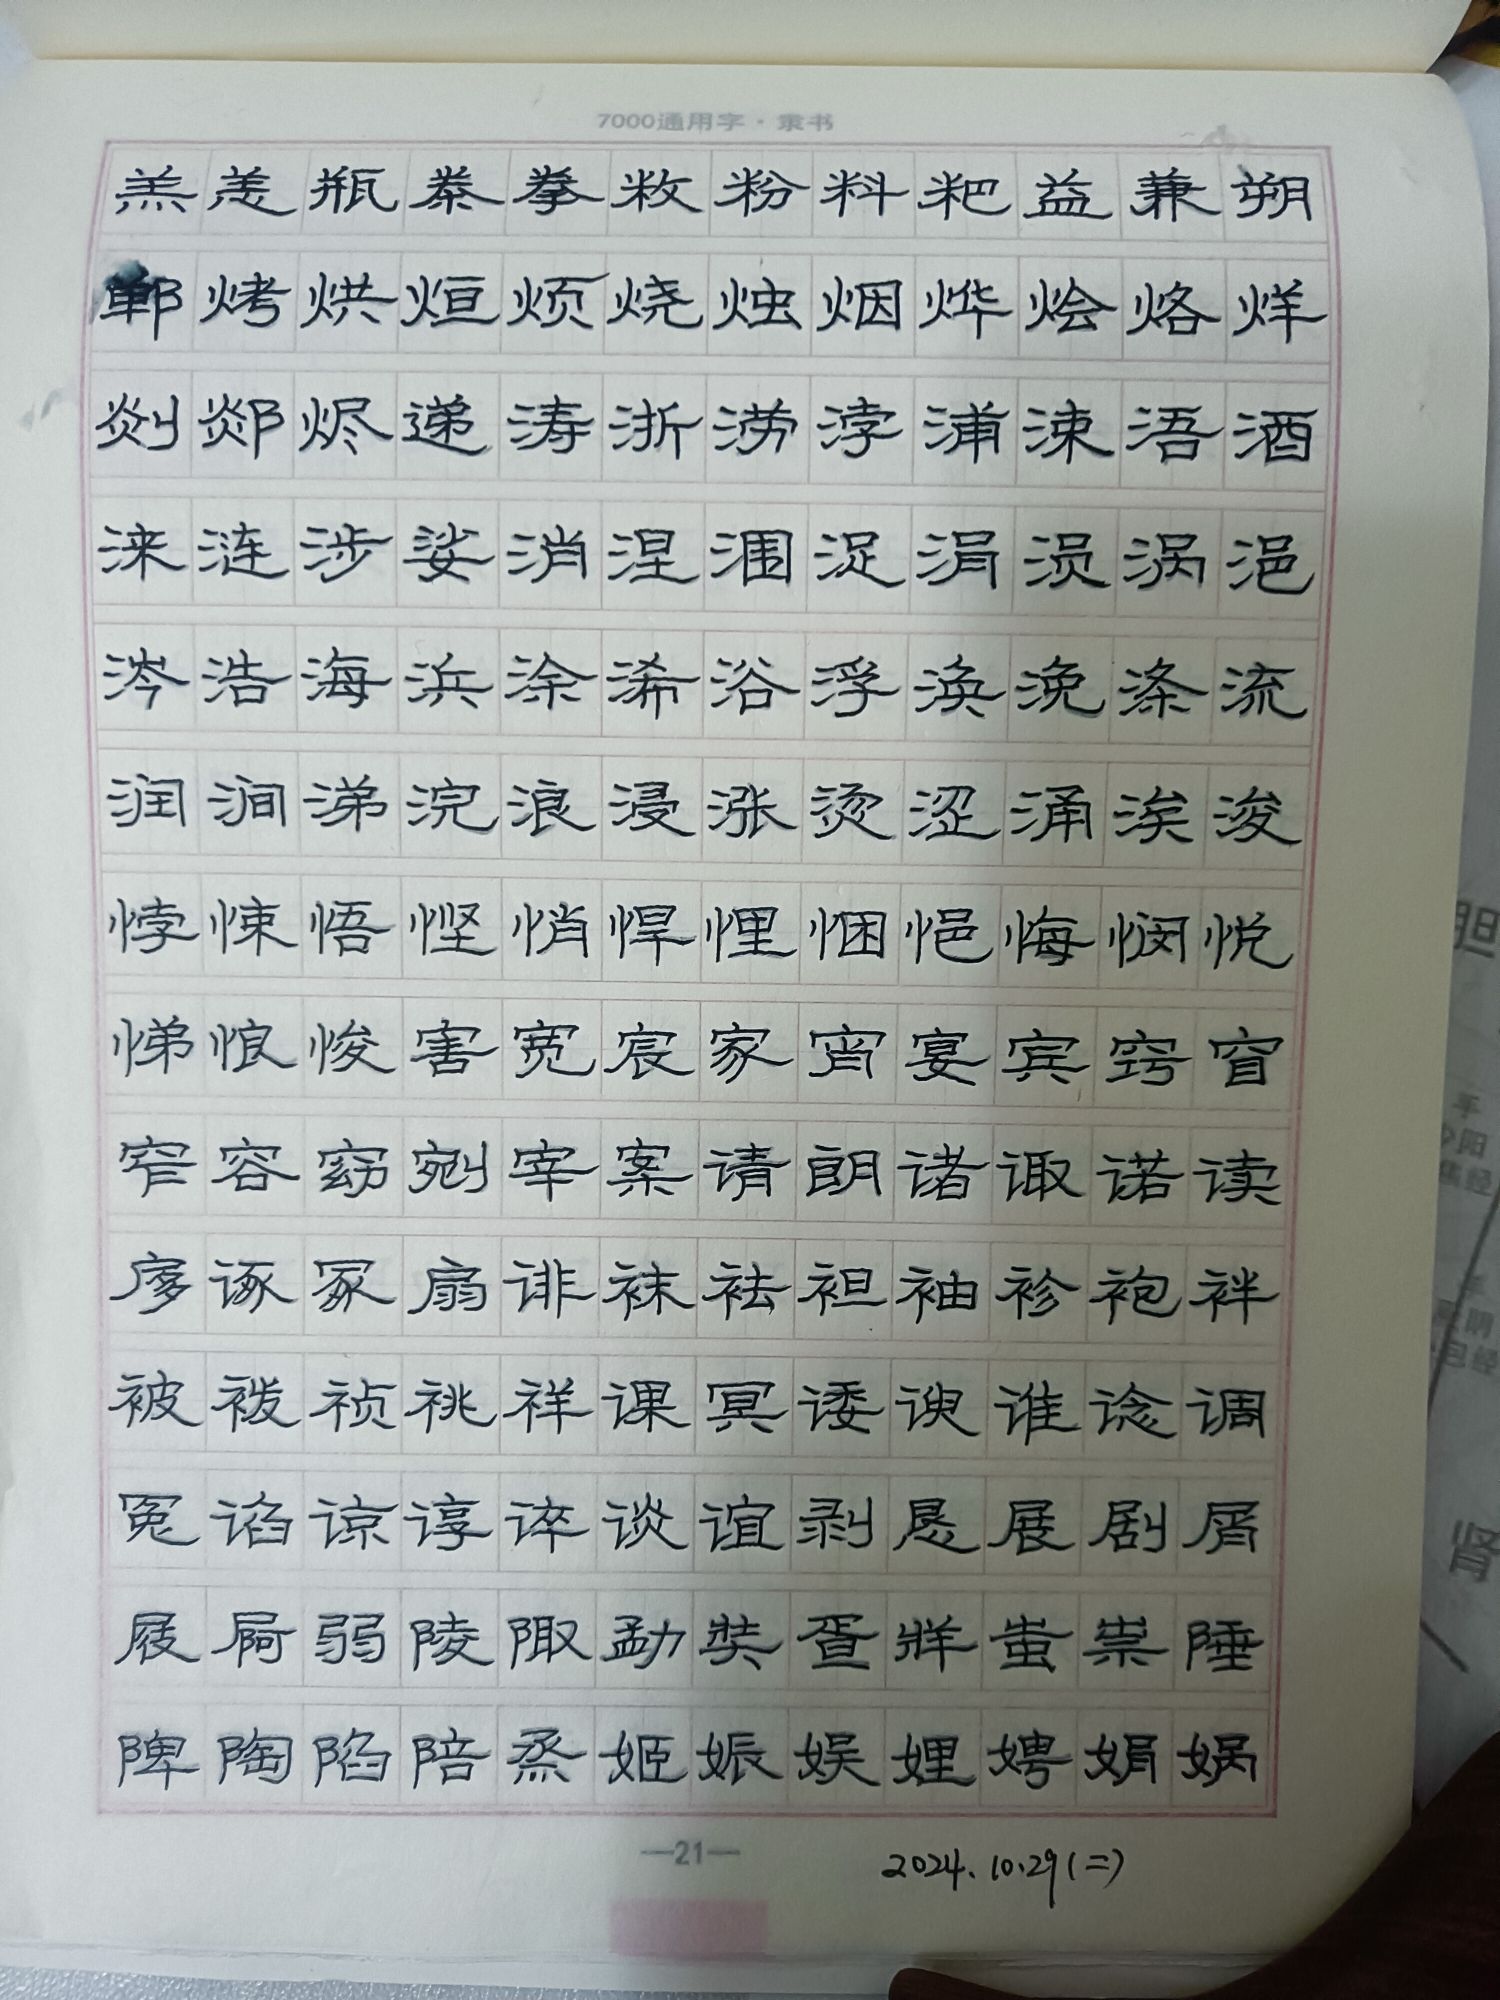 7000通用字·隶书
羔恙瓶桊拳敉粉料粑益兼朔
郸烤烘烜烦烧烛烟烨烩烙烊
剡郯烬递涛浙涝浡浦涑浯酒
涞涟涉娑消涅涠浞涓涢涡浥
涔浩海浜涂浠浴浮涣浼涤流
润涧涕浣浪浸涨烫涩涌涘浚
悖悚悟悭悄悍悝悃悒悔悯悦
悌悢悛害宽宸家宵宴宾窍窅
窄容窈剜宰案请朗诸诹诺读
扅诼冢扇诽袜袪袒袖袗袍袢
被袯祯祧祥课冥诿谀谁谂调
冤谄谅谆谇谈谊剥恳展剧屑
屐屙弱陵陬勐奘疍牂蚩祟陲
陴陶陷陪烝姬娠娱娌娉娟娲
—21—
2024.10.29(二)
胆
手
少阳
焦经
手
厥阴
包经
肾